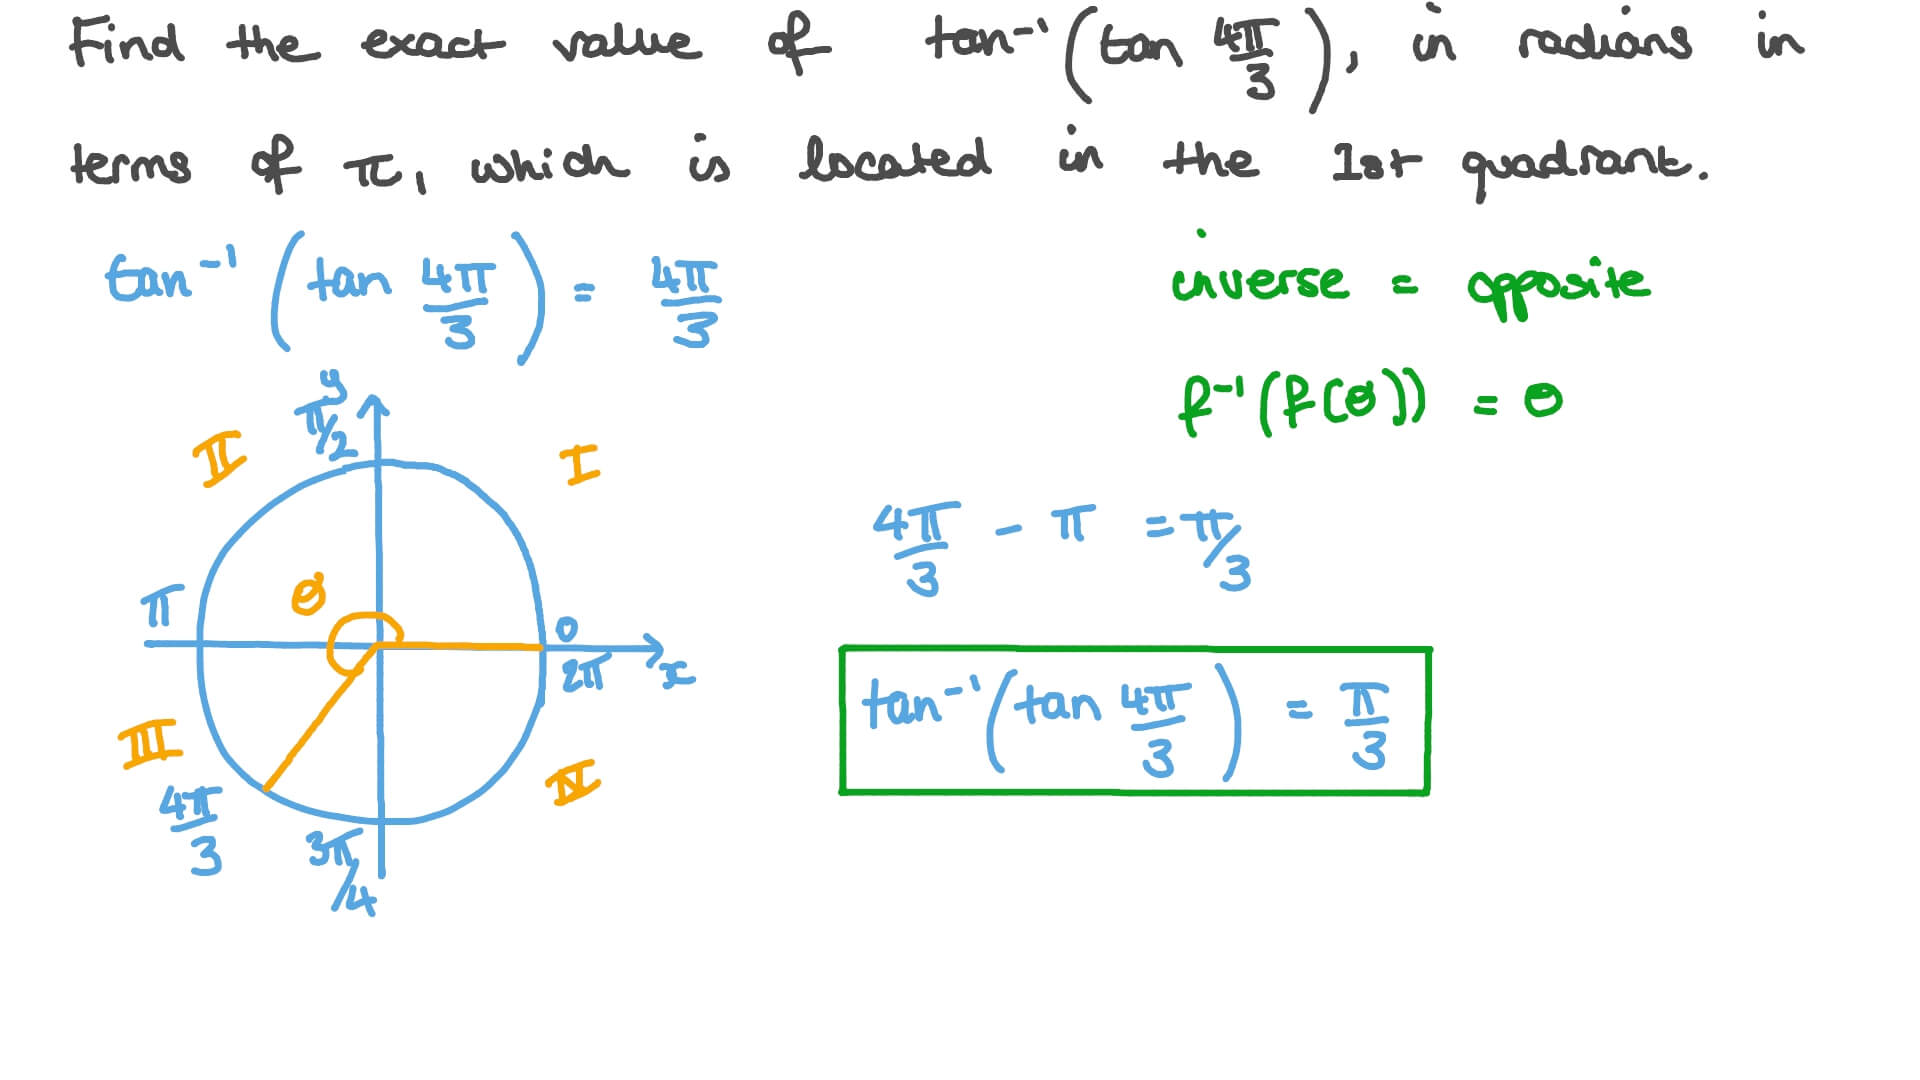 Find the exact value of tan⁻¹(tan 4π/3), in radians in
terms of π, which is located in the 1st quadrant.
tan⁻¹(tan 4π/3) = 4π/3
inverse = opposite
f⁻¹(f(θ)) = θ
y
π/2
II
I
4π/3 - π = π/3
θ
π
0
2π
x
tan⁻¹(tan 4π/3) = π/3
III
IV
4π/3
3π/4